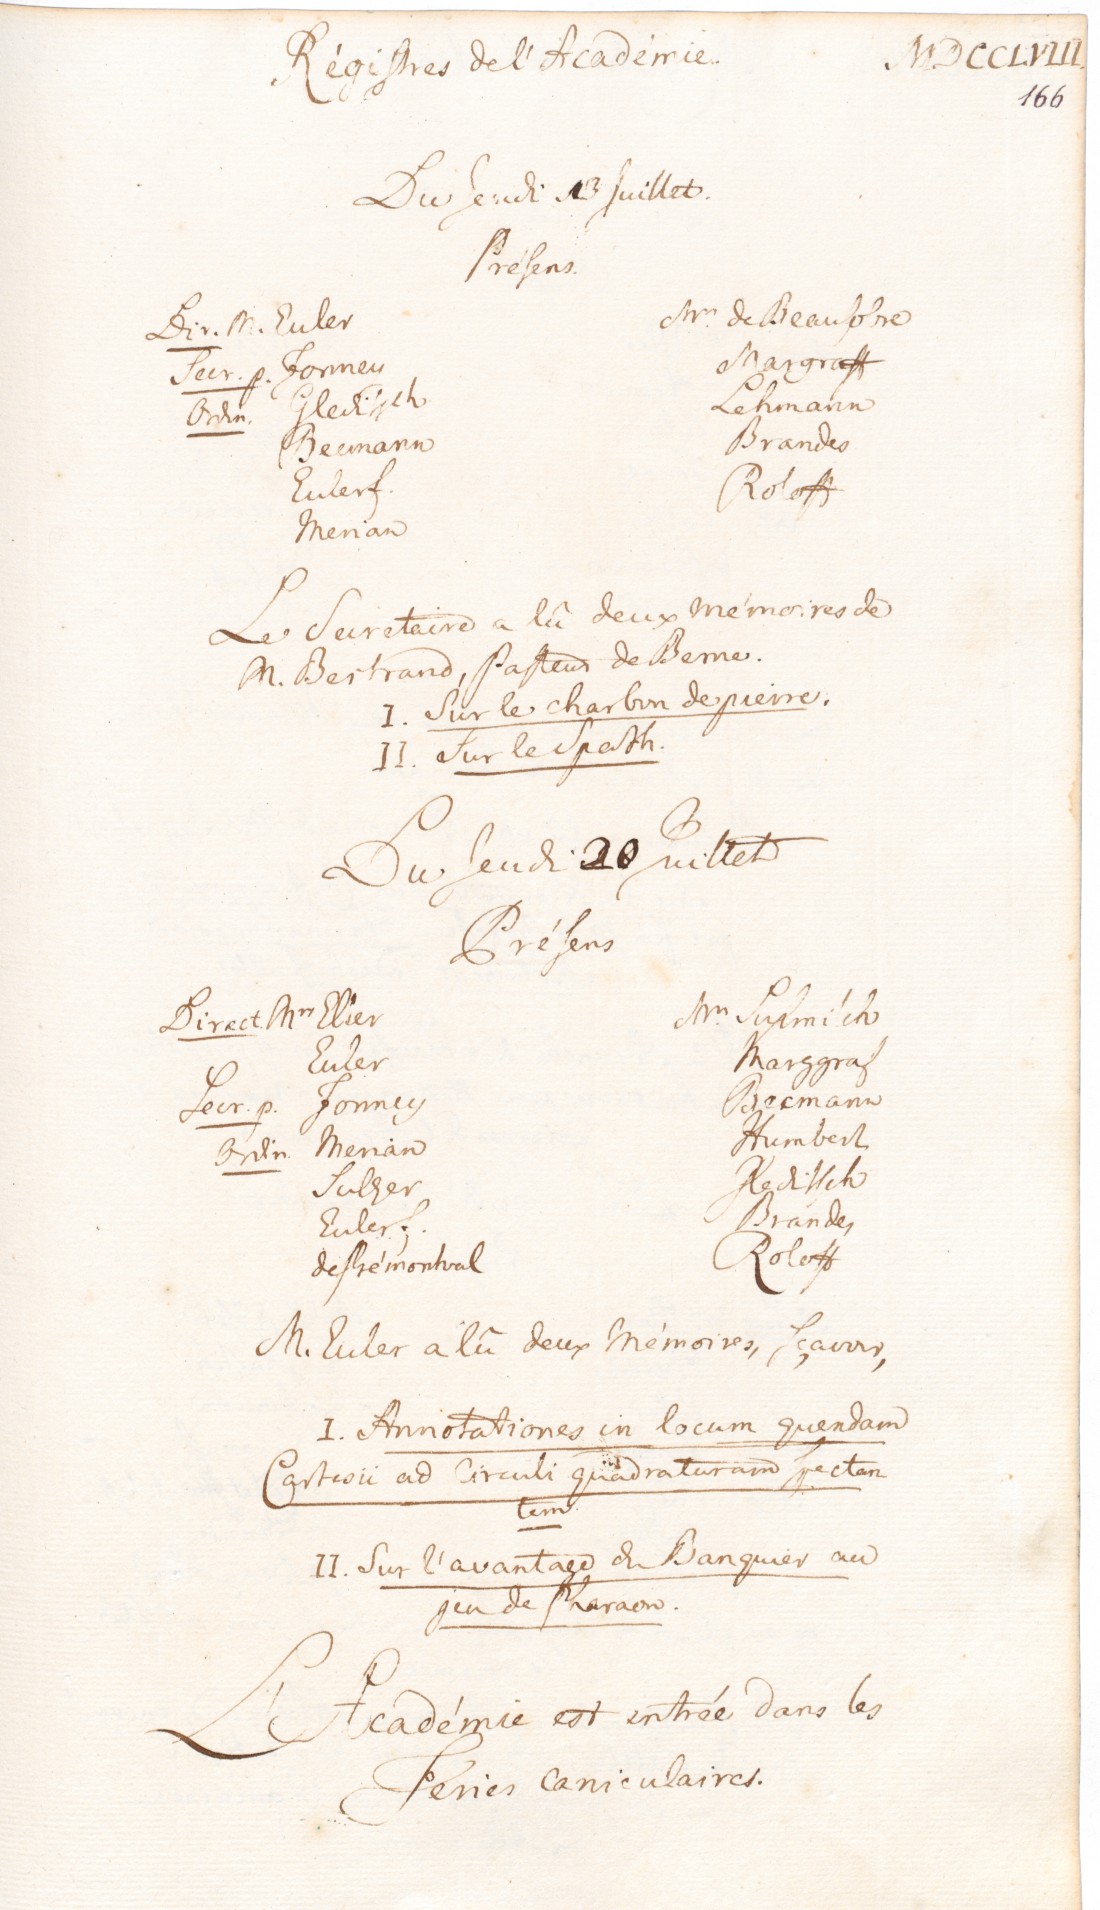 Régistres de l'Académie.
MDCCLVIII.
166
Du Jeudi 13 Juillet.
Présens.
Dir. M. Euler
Secr. p. Formey
Ordin. Gleditsch
Becmann
Euler f.
Merian
Mrs. de Beausobre
Margraff
Lehmann
Brandes
Roloff
Le Secretaire a lû deux Mémoires de
M. Bertrand, Pasteur de Berne.
I. Sur le charbon de pierre.
II. Sur le Spath.
Du Jeudi 20 Juillet
Présens
Direct. Mrs Eller
Euler
Secr. p. Formey
Ordin. Merian
Sulzer
Euler f.
de Prémontval
Mrs Süsmilch
Marggraf
Becmann
Humbert
Gleditsch
Brandes
Roloff
M. Euler a lû deux Mémoires, sçavoir,
I. Annotationes in locum quendam
Cartesii ad Circuli quadraturam spectan
tem
II. Sur l'avantage du Banquier au
jeu de Pharaon.
L'Académie est entrée dans les
Féries caniculaires.